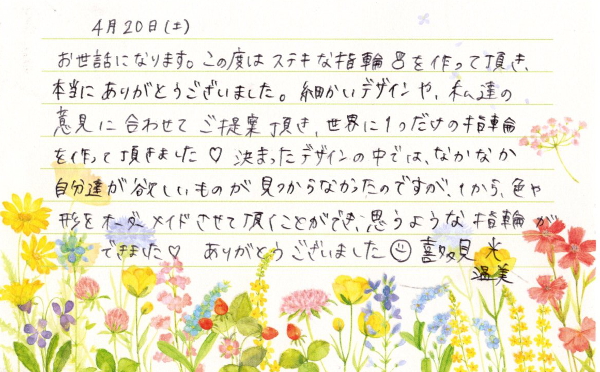 4月20日(土)
お世話になります。この度はステキな指輪を作って頂き、
本当にありがとうございました。細かいデザインや、私達の
意見に合わせてご提案頂き、世界に1つだけの指輪
を作って頂きました♡ 決まったデザインの中では、なかなか
自分達が欲しいものが見つからなかったのですが、1から、色や
形をオーダーメイドさせて頂くことができ、思うような指輪が
できました♡ ありがとうございました☺ 喜多見 光
温美